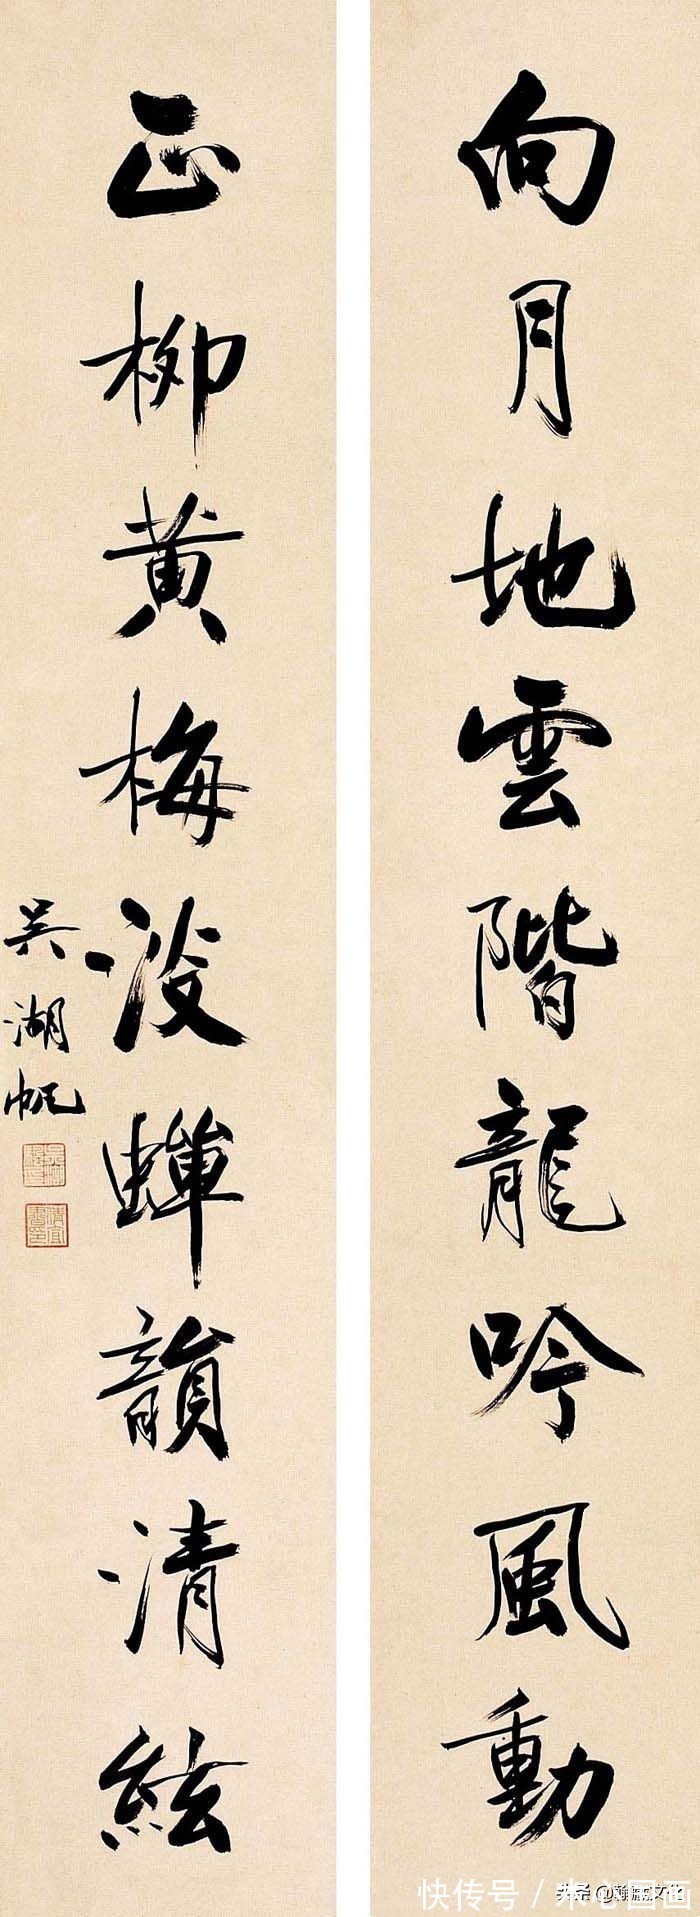 向月地雲階龍吟風動
正柳黄梅蟬韻清絃
吴湖帆
快传号 / 心国画